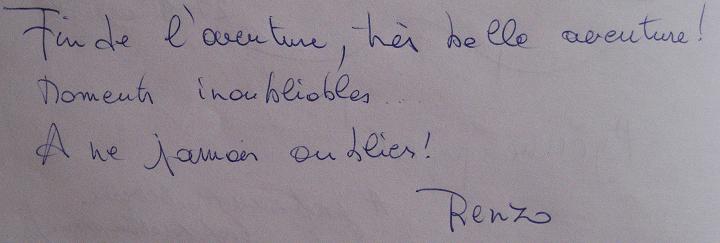 Fin de l'aventure, très belle aventure!
Moments inoubliables...
A ne jamais oublier!
Renzo